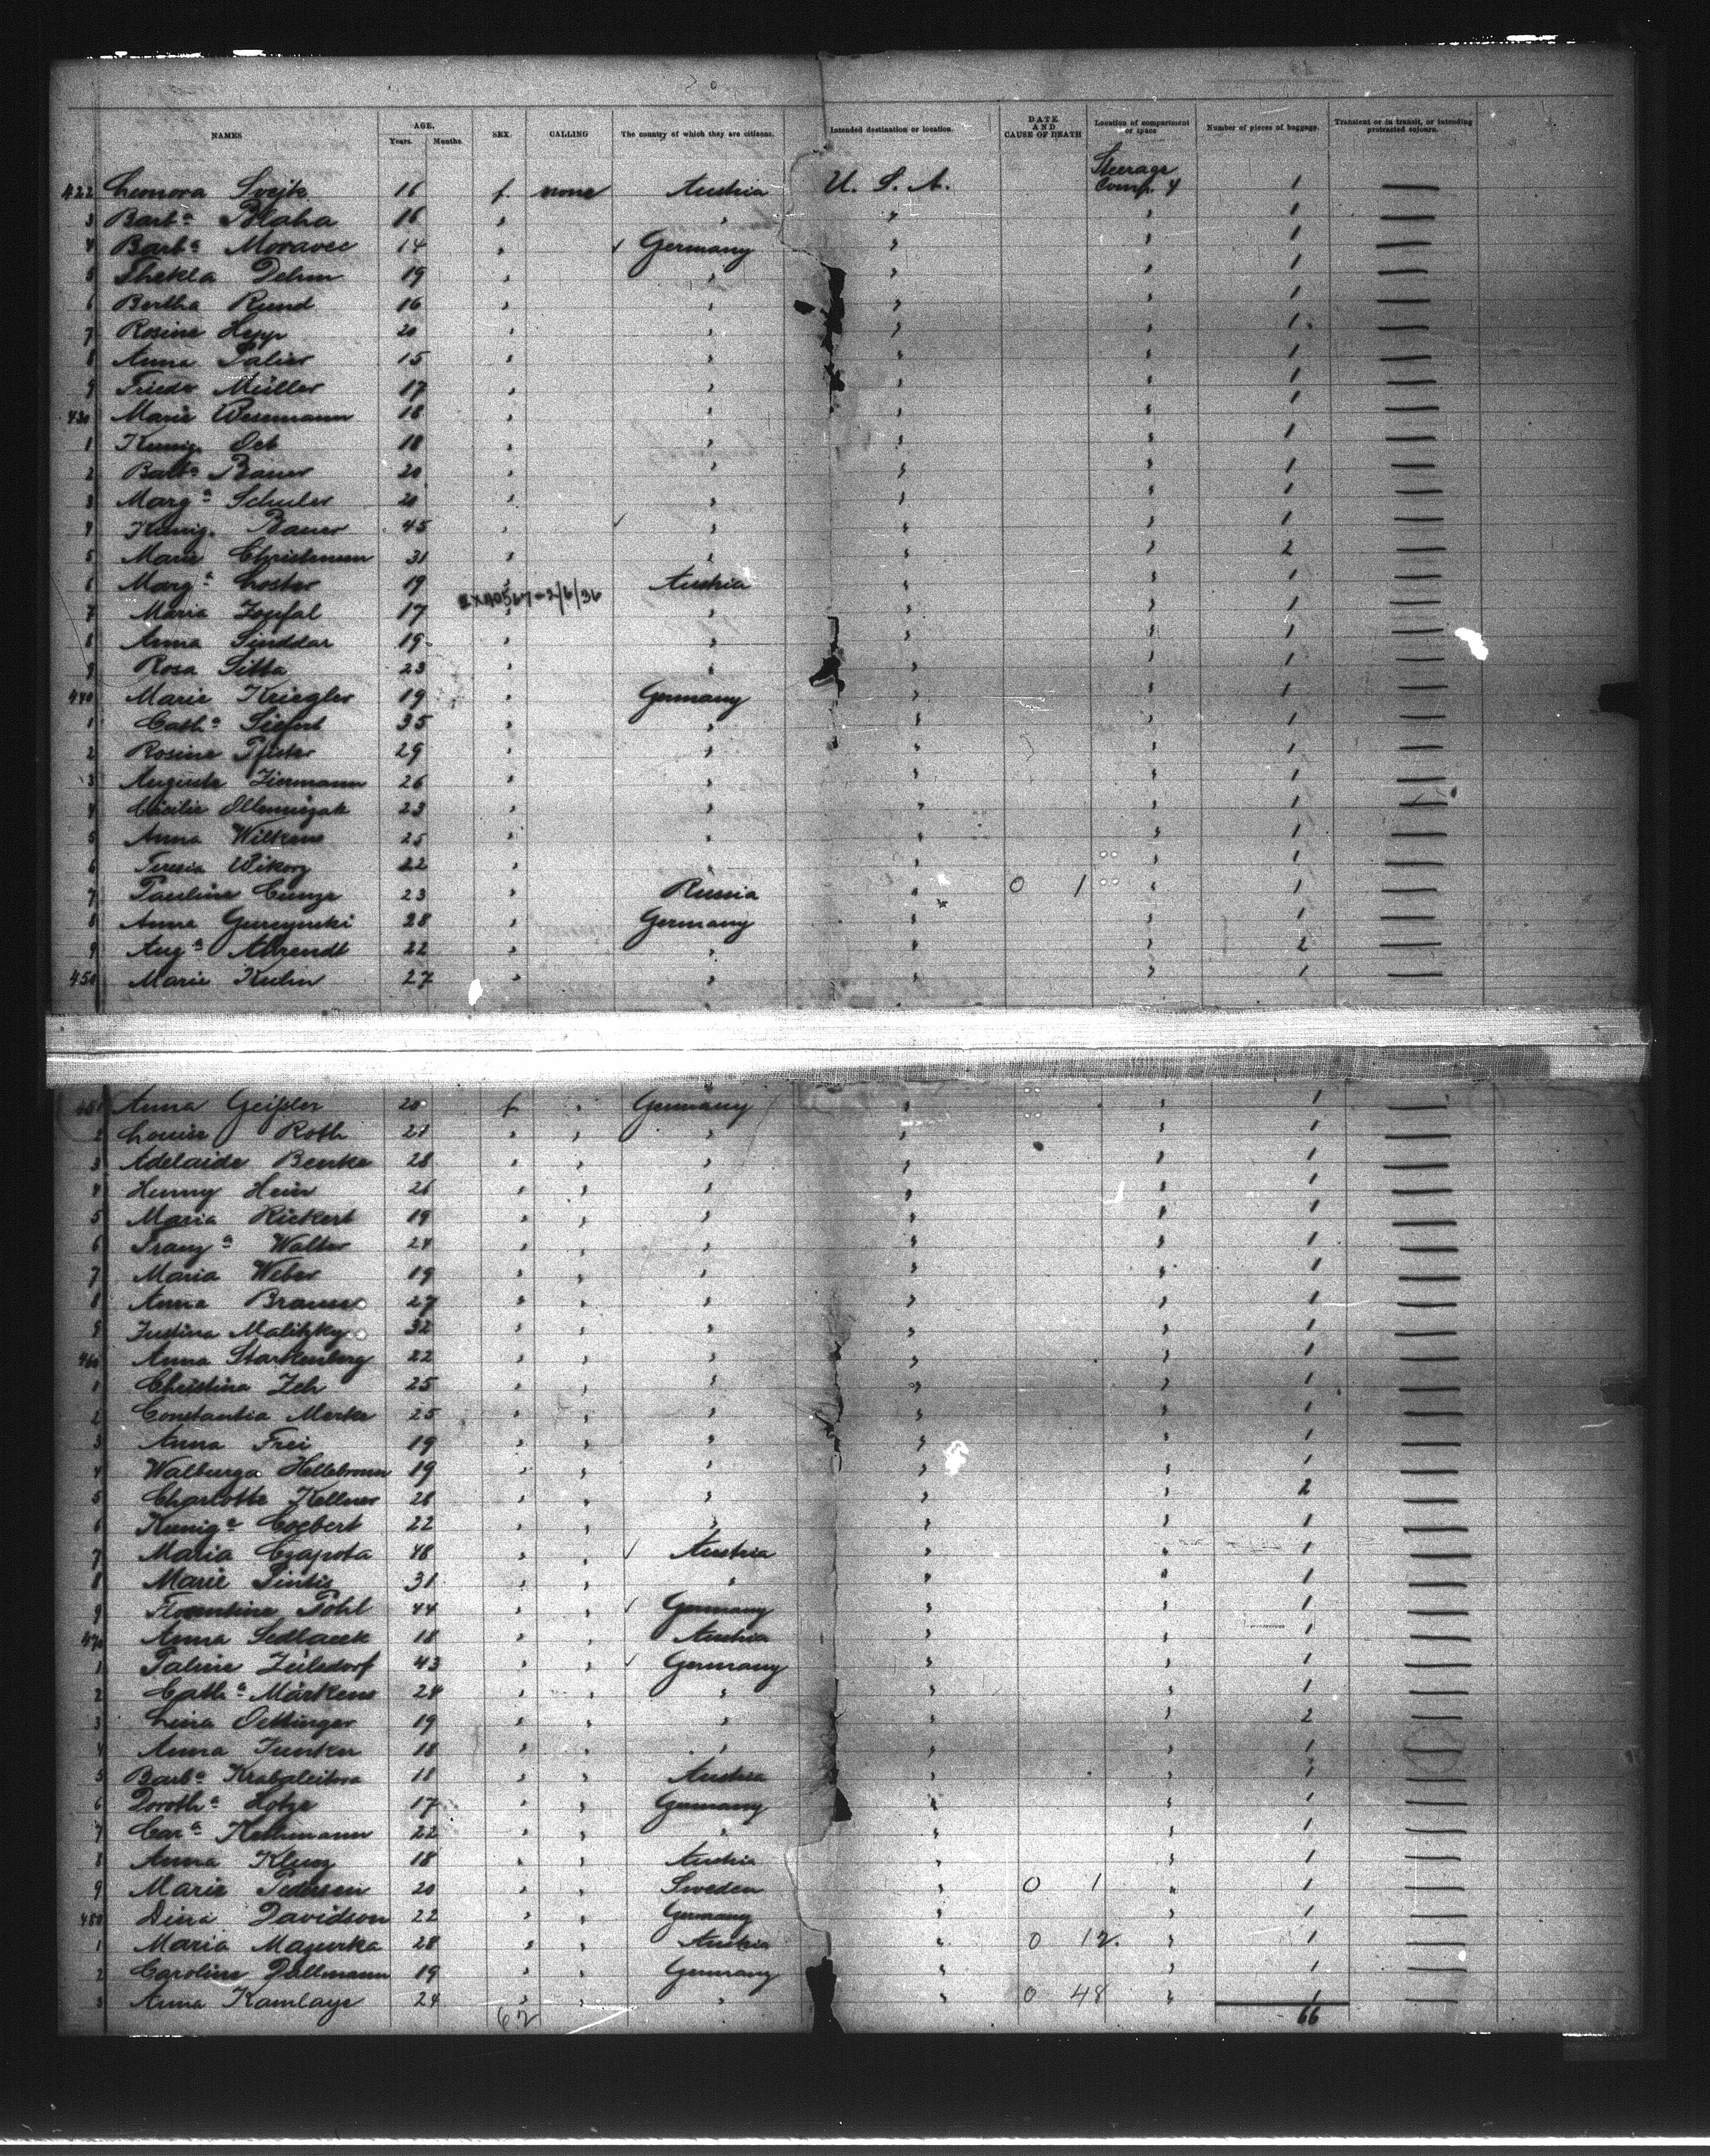 NAMES AGE. Years. Months. SEX. CALLING The country of which they are citizens. Intended destination or location. DATE AND CAUSE OF DEATH Location of compartment or space Number of pieces of baggage. Transient or in transit, or intending protracted sojourn.
422 Leonora Svejk 16 f. none Austria U. S. A. Steerage Comp. 4 1 —
3 Barbª Blaha 16 " " " " 1 —
4 Barbª Moravec 14 " ✓ Germany " " 1 —
5 Thekla Dehm 19 " " " " 1 —
6 Bertha Rund 16 " " " " 1 —
7 Rosine Hepp 20 " " " " 1 —
8 Anna 15 " " " " 1 —
9 Frieda Müller 17 " " " " 1 —
430 Marie Wesemann 18 " " " " 1 —
1 Kunig. Och 18 " " " " 1 —
2 Barbª Bauer 20 " " " " 1 —
3 Margª Schuler 20 " " " " 1 —
4 Kunig. Bauer 45 " ✓ " " " 1 —
5 Marie Christensen 31 " " " " 2 —
6 Margª Loster 19 " Austria " " 1 —
2X40567-2/6/36
7 Maria Zopfal 17 " " " " 1 —
8 Anna Sinddar 19 " " " " 1 —
9 Rosa Sitta 23 " " " " 1 —
440 Marie Kriegler 19 " Germany " " 1 —
1 Cathª Siefert 35 " " " " 1 —
2 Rosine Pfister 29 " " " " 1 —
3 Auguste Ziermann 26 " " " " 1 —
4 Cäcilie 23 " " " " 1 —
5 Anna Wilkens 25 " " " " 1 —
6 Teresia Wikorz 22 " " " " 1 —
7 Pauline Cunze 23 " Russia " 0 1 " 1 —
8 Anna Gurzynski 28 " Germany " " 1 —
9 Augª Ahrendt 22 " " " " 2 —
450 Marie Kuhn 27 " " " " 1 —
451 Anna Geißler 20 f " Germany " " 1 —
2 Louise Roth 21 " " " " " 1 —
3 Adelaide Benke 28 " " " " " 1 —
4 Henny Hein 26 " " " " " 1 —
5 Maria Rickert 19 " " " " " 1 —
6 Franzª Walter 24 " " " " " 1 —
7 Maria Weber 19 " " " " " 1 —
8 Anna Brauer 27 " " " " " 1 —
9 Justina Malitzky 32 " " " " " 1 —
460 Anna Starkenberg 22 " " " " " 1 —
1 Christina Zeh 25 " " " " " 1 —
2 Constantia Merke 25 " " " " " 1 —
3 Anna Frei 19 " " " " " 1 —
4 Walburga Hellebronn 19 " " " " " 1 —
5 Charlotte Kellner 28 " " " " " 2 —
6 Kunigª Cogbert 22 " " " " " 1 —
7 Maria Czapota 48 " " ✓ Austria " " 1 —
8 Marie Pintis 31 " " " " " 1 —
9 Florentine Pohl 44 " " ✓ Germany " " 1 —
470 Anna Sedlacek 18 " " Austria " " 1 —
1 Paline Zeilsdorf 43 " " ✓ Germany " " 1 —
2 Cathª Märkens 24 " " " " " 1 —
3 Lina Oettinger 19 " " " " " 2 —
4 Anna Junker 18 " " " " " 1 —
5 Barbª 18 " " Austria " " 1 —
6 Dorothª Hotze 17 " " Germany " " 1 —
7 Carª Kethmann 22 " " " " " 1 —
8 Anna Klug 18 " " Austria " " 1 —
9 Marie Pedersen 20 " " Sweden " 0 1 " 1 —
480 Dina Davidson 22 " " Germany " " 1 —
1 Maria Mazurka 28 " " Austria " 0 12. " 1 —
2 Caroline Dallmann 19 " " Germany " " 1 —
3 Anna Kamlage 24 " " " " 0 48 " 1 —
62 66